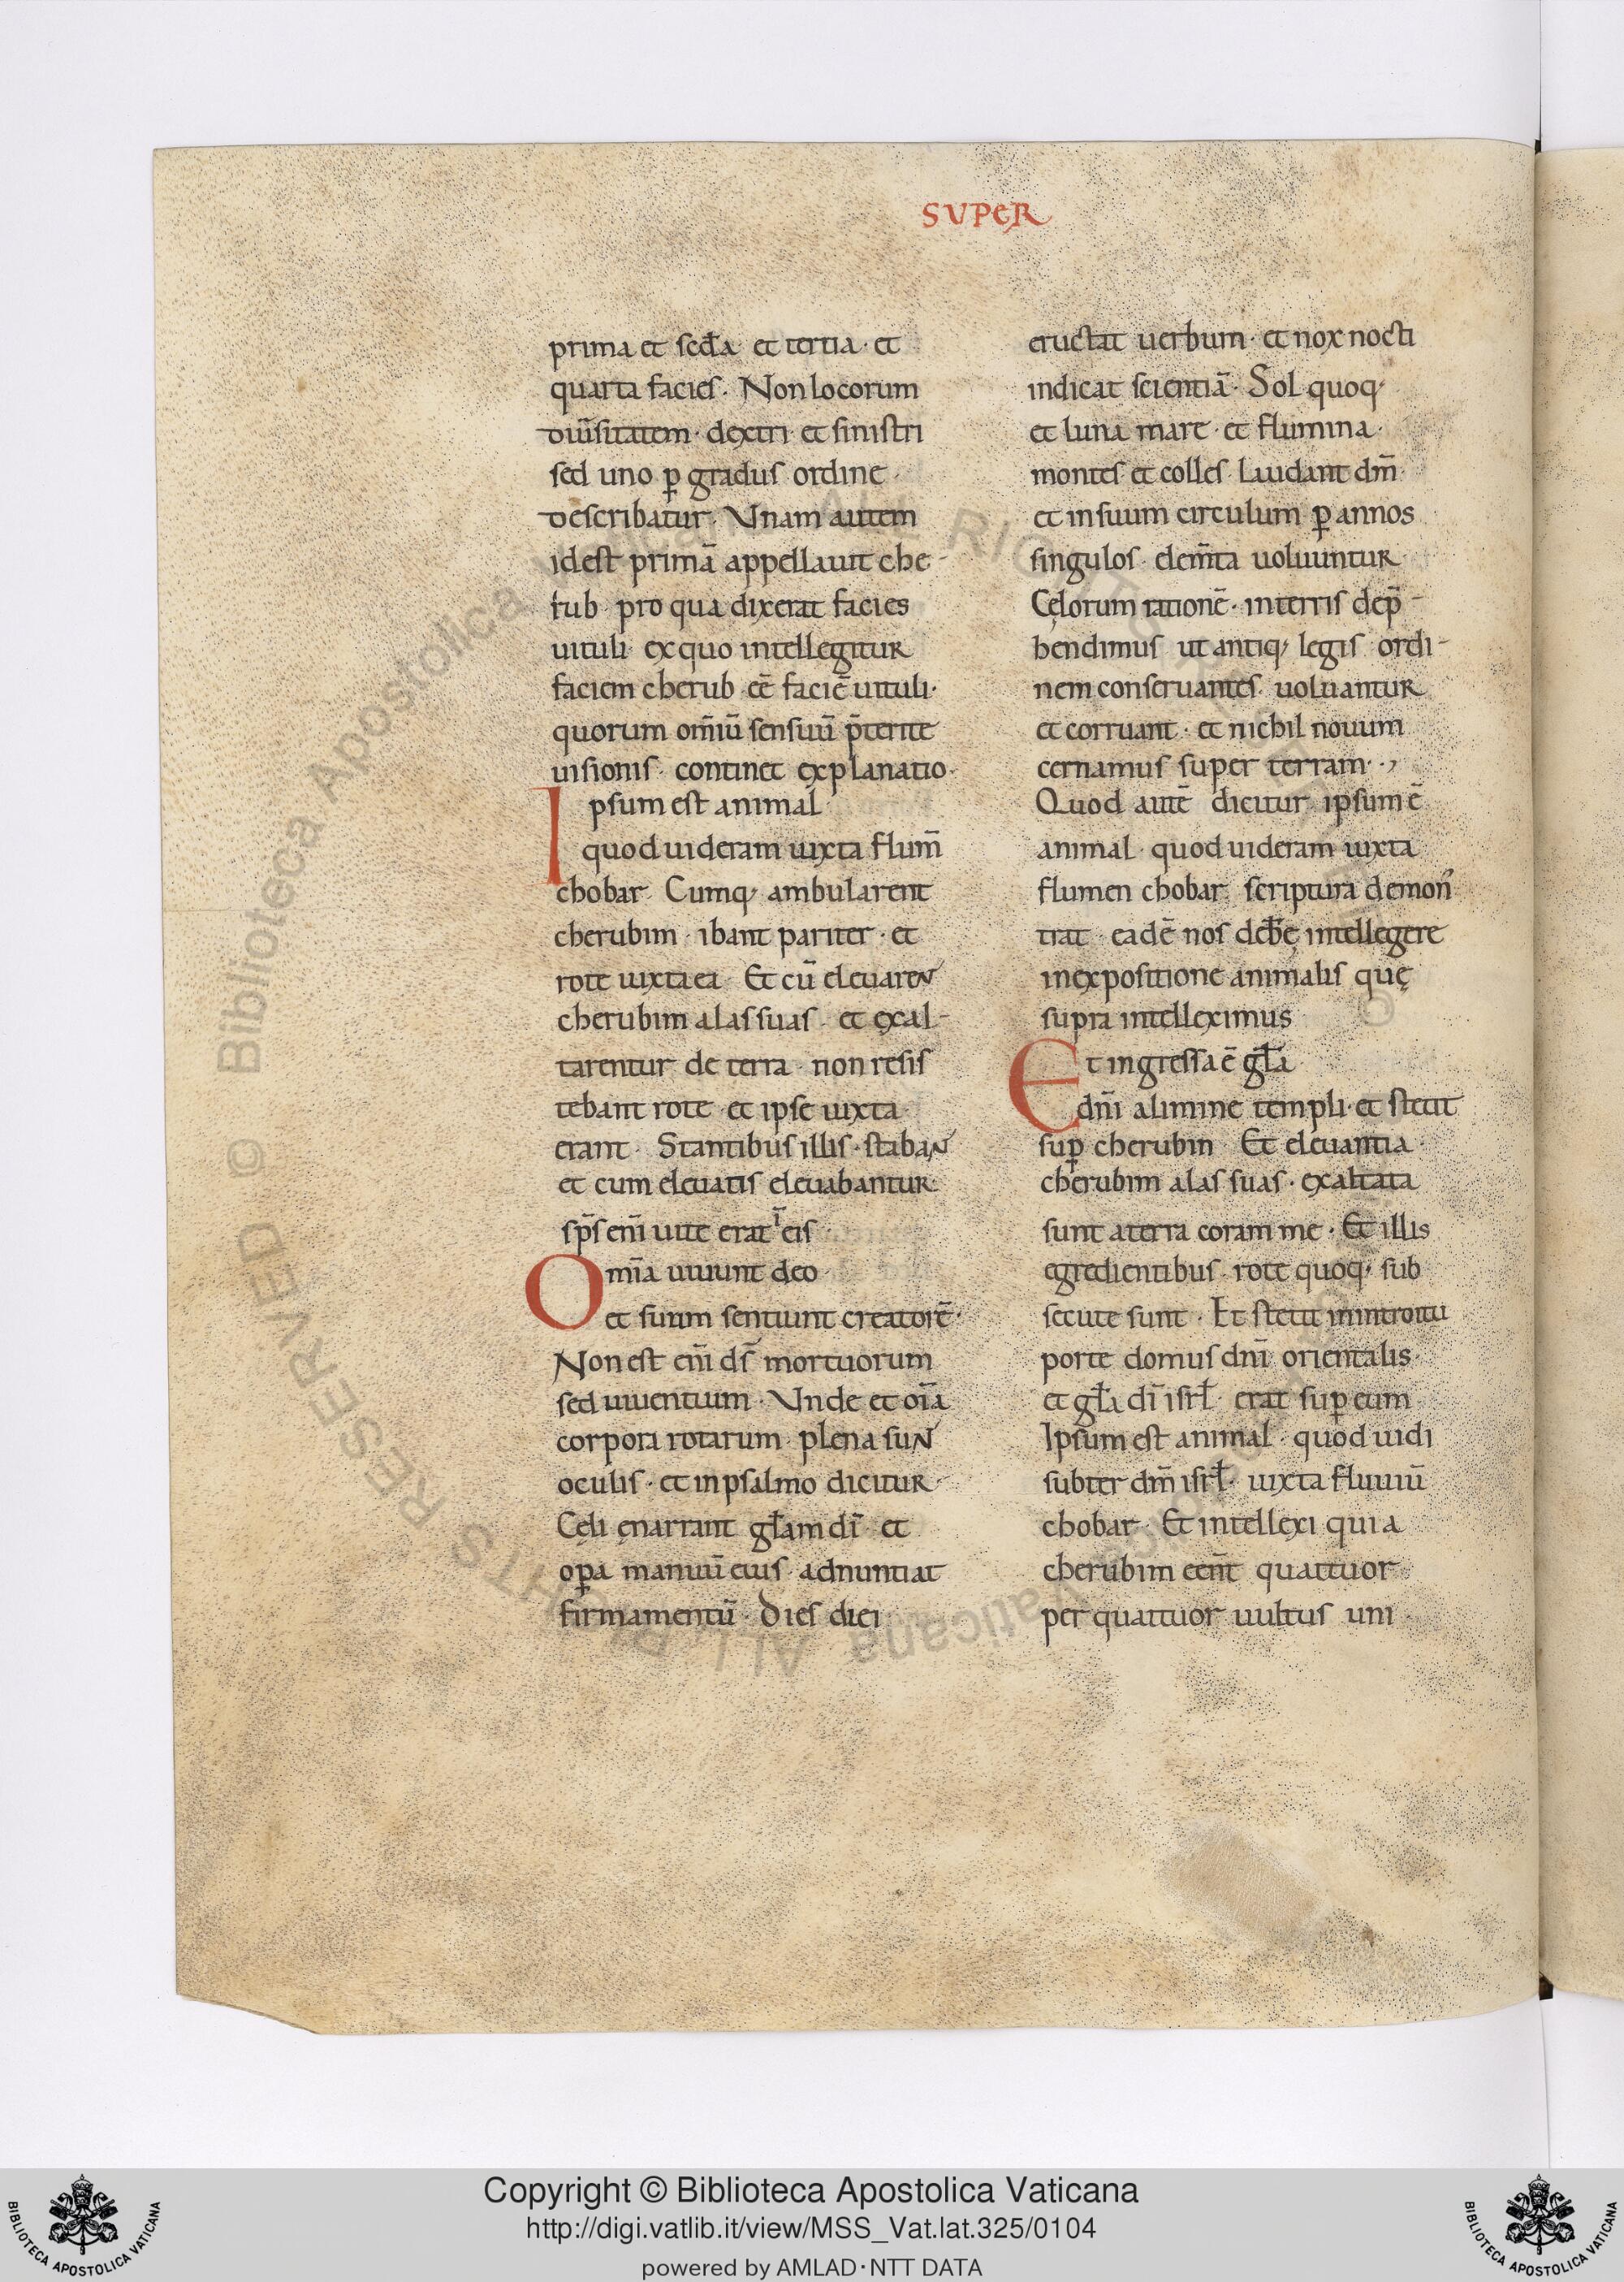 SUPER
prima et secđa et tertia· et
quarta facies. Non locorum
diu͂sitatem· dextri et sinistri
sed uno ꝑ gradus ordine
describatur. Vnam autem
idest primā appellauit che-
rub pro qua dixerat facies
uituli ex quo intellegitur
faciem cherub eē faciē uituli·
quorum om̄iū sensuū p̄terite
uisionis continet explanatio·
Ipsum est animal
quod uideram iuxta flum̄
chobar. Cumq; ambularent
cherubim· ibant pariter· et
rote iuxta ea Et cū eleuareN
cherubim alas suas et exal-
tarentur de terra non resis
tebant rote et ipse iuxta
erant. Stantibus illis· stabaN
et cum eleuatis eleuabantur
sp̄s eni͂ uite erat ī eis
Omi͂a uiuunt deo
et suum sentiunt creatorē·
Non est eni͂ ds̄ mortuorum
sed uiuentium. Vnde et oi͂a
corpora rotarum plena suN
oculis· et in psalmo dicitur
Cęli ęnarrant gl̄am dī et
oꝑa manuū eius adnuntiat
firmamentū· Dies diei
eructat uerbum· et nox nocti
indicat scientiā· Sol quoq;
et luna mare· et flumina·
montes et colles laudant dm̄
et in suum circulum ꝑ annos
singulos elem̄ta uoluuntur
Cęlorum rationē· interris dep̄-
hendimus ut antiq; legis ordi-
nem conseruantes uoluantur
et corruant· et nichil nouum
cernamus super terram·,
Quod autē dicitur ipsum ē
animal quod uideram iuxta
flumen chobar scriptura demons
trat eadē nos deb̄ę intellegere
inexpositione animalis quę
supra intelleximus
Et ingressa ē gl̄a
dn̄i alimine templi et stetit
suꝑ cherubin Et eleuantia
cherubim alas suas· exaltata
sunt aterra coram me· Et illis
egredientibus rote quoq; sub
secute sunt· Et stetit inintroitu
porte domus dn̄i orientalis
et gl̄a dī isrl̄ erat suꝑ eum
Ipsum est animal· quod uidi
subter dm̄ isrl̄· iuxta fluuiū
chobar· Et intellexi quia
cherubim een̄t quattuor
per quattuor uultus uni
Copyright © Biblioteca Apostolica Vaticana
http://digi.vatlib.it/view/MSS_Vat.lat.325/0104
powered by AMLAD·NTT DATA
BIBLIOTECA APOSTOLICA VATICANA
BIBLIOTECA APOSTOLICA VATICANA